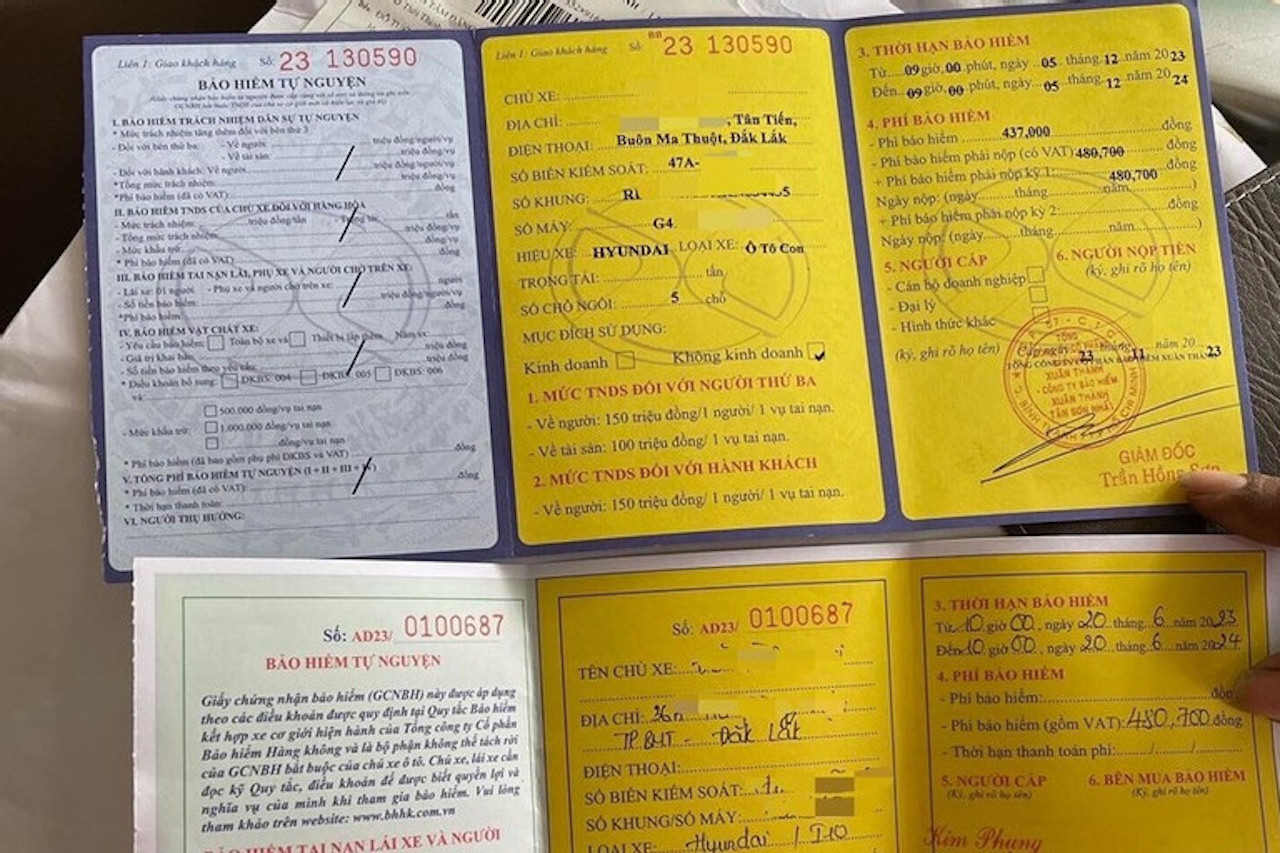 Liên 1: Giao khách hàng Số: 23 130590
BẢO HIỂM TỰ NGUYỆN
I. BẢO HIỂM TRÁCH NHIỆM DÂN SỰ TỰ NGUYỆN
* Mức trách nhiệm tăng thêm đối với bên thứ 3
- Đối với bên thứ ba: - Về người: triệu đồng/người/vụ
- Về tài sản: triệu đồng/vụ
- Đối với hành khách: Về người triệu đồng/người/vụ
*Tổng mức trách nhiệm: triệu đồng/vụ
*Phí bảo hiểm (đã có VAT) đồng
II. BẢO HIỂM TNDS CỦA CHỦ XE ĐỐI VỚI HÀNG HÓA
- Mức trách nhiệm: triệu đồng/tấn tấn
- Tổng mức trách nhiệm: triệu đồng/vụ
- Mức khấu trừ: đồng/vụ
* Phí bảo hiểm (đã có VAT) đồng
III. BẢO HIỂM TAI NẠN LÁI, PHỤ XE VÀ NGƯỜI CHỞ TRÊN XE:
- Lái xe: 01 người - Phụ xe và người chở trên xe: người
- Số tiền bảo hiểm: triệu đồng/người/vụ
*Phí bảo hiểm: đồng
IV. BẢO HIỂM VẬT CHẤT XE:
- Yêu cầu bảo hiểm: Toàn bộ xe và Thiết bị lắp thêm Năm sx
- Giá trị khai báo: triệu đồng
- Số tiền bảo hiểm theo yêu cầu: triệu đồng
* Điều khoản bổ sung: ĐKBS 004 ĐKBS 005 ĐKBS 006
và:
500.000 đồng/vụ tai nạn
- Mức khấu trừ: 1.000.000 đồng/vụ tai nạn
đồng/vụ tai nạn
* Phí bảo hiểm (đã bao gồm phụ phí ĐKBS và VAT) đồng
V. TỔNG PHÍ BẢO HIỂM TỰ NGUYỆN (I + II + III + IV)
* Phí bảo hiểm (đã có VAT): đồng
* Thời hạn thanh toán:
VI. NGƯỜI THỤ HƯỞNG:
Liên 1: Giao khách hàng Số: BB 23 130590
CHỦ XE:
ĐỊA CHỈ: , Tân Tiến,
ĐIỆN THOẠI: Buôn Ma Thuột, Đắk Lắk
SỐ BIỂN KIỂM SOÁT: 47A-
SỐ KHUNG: RL
SỐ MÁY: G4
HIỆU XE: HYUNDAI LOẠI XE: Ô Tô Con
TRỌNG TẢI: tấn
SỐ CHỖ NGỒI: 5 chỗ
MỤC ĐÍCH SỬ DỤNG:
Kinh doanh Không kinh doanh
1. MỨC TNDS ĐỐI VỚI NGƯỜI THỨ BA
- Về người: 150 triệu đồng/1 người/ 1 vụ tai nạn.
- Về tài sản: 100 triệu đồng/ 1 vụ tai nạn.
2. MỨC TNDS ĐỐI VỚI HÀNH KHÁCH
- Về người: 150 triệu đồng/ 1 người/ 1 vụ tai nạn.
3. THỜI HẠN BẢO HIỂM
Từ 09 giờ, 00 phút, ngày 05 tháng 12 năm 2023
Đến 09 giờ, 00 phút, ngày 05 tháng 12 năm 2024
4. PHÍ BẢO HIỂM:
- Phí bảo hiểm 437,000 đồng
- Phí bảo hiểm phải nộp (có VAT) 480,700 đồng
+ Phí bảo hiểm phải nộp kỳ 1: 480,700 đồng
Ngày nộp: (ngày tháng năm )
+ Phí bảo hiểm phải nộp kỳ 2: đồng
Ngày nộp: (ngày tháng năm )
5. NGƯỜI CẤP 6. NGƯỜI NỘP TIỀN
- Cán bộ doanh nghiệp (ký, ghi rõ họ tên)
- Đại lý
- Hình thức khác
(ký, ghi rõ họ tên) 23 tháng 11 năm 2023
TỔNG
XUÂN THÀNH
- CÔNG TY BẢO HIỂM
XUÂN THÀNH
TÂN SƠN NHẤT
GIÁM ĐỐC
Trần Hồng Sơn
Số: AD23/ 0100687
BẢO HIỂM TỰ NGUYỆN
Giấy chứng nhận bảo hiểm (GCNBH) này được áp dụng
theo các điều khoản được quy định tại Quy tắc Bảo hiểm
kết hợp xe cơ giới hiện hành của Tổng công ty Cổ phần
Bảo hiểm Hàng không và là bộ phận không thể tách rời
của GCNBH bắt buộc của chủ xe ô tô. Chủ xe, lái xe cần
đọc kỹ Quy tắc, điều khoản để được biết quyền lợi và
nghĩa vụ của mình khi tham gia bảo hiểm. Vui lòng
tham khảo trên website: www.bhhk.com.vn
BẢO HIỂM TAI NẠN LÁI XE VÀ NGƯỜI
Số: AD23/ 0100687
TÊN CHỦ XE:
ĐỊA CHỈ:
TP BMT - Đăk Lăk
ĐIỆN THOẠI:
SỐ BIỂN KIỂM SOÁT:
SỐ KHUNG/SỐ MÁY:
LOẠI XE: Hyundai / I10
3. THỜI HẠN BẢO HIỂM
Từ 10 giờ 00, ngày 20 tháng 6 năm 2023
Đến 10 giờ 00, ngày 20 tháng 6 năm 2024
4. PHÍ BẢO HIỂM
- Phí bảo hiểm: đồng
- Phí bảo hiểm (gồm VAT): 480,700 đồng
- Thời hạn thanh toán phí: / /
5. NGƯỜI CẤP 6. BÊN MUA BẢO HIỂM
(Ký, ghi rõ họ tên) (Ký, ghi rõ họ tên)
Kim Phụng